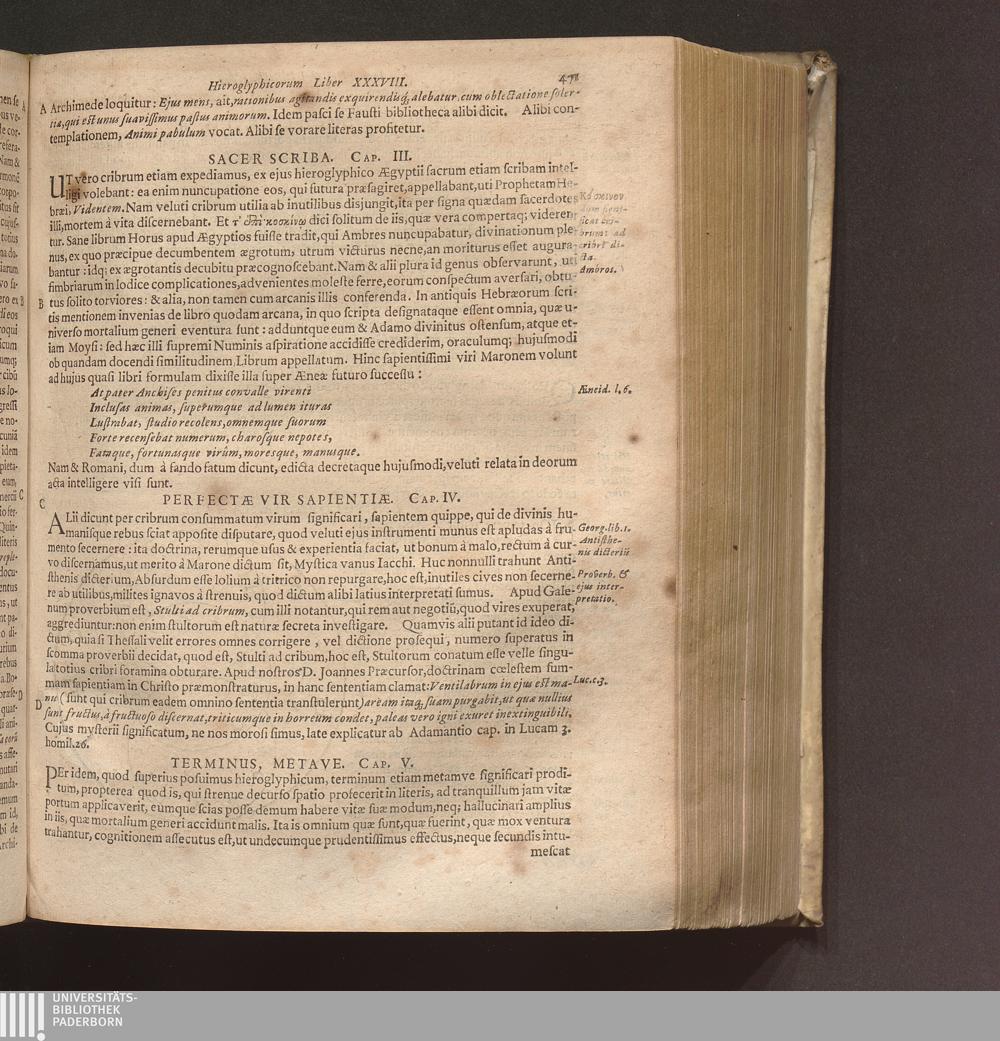 Hieroglyphicorum Liber XXXVIII.
A Archimede loquitur: Ejus mens, ait, rationibus agitandis exquirendisq́; alebatur, cum oblectatione soler-
tiæ, qui est unus suavissimus pastus animorum. Idem pasci se Fausti bibliotheca alibi dicit. Alibi con-
templationem, Animi pabulum vocat. Alibi se vorare literas profitetur.
SACER SCRIBA. CAP. III.
UT vero cribrum etiam expediamus, ex ejus hieroglyphico Ægyptii sacrum etiam scribam intel-
ligi volebant: ea enim nuncupatione eos, qui futura præsagiret, appellabant, uti Prophetam He-
bræi, Videntem. Nam veluti cribrum utilia ab inutilibus disjungit, ita per signa quædam sacerdotes
illi, mortem à vita discernebant. Et κοσκίνῳ dici solitum de iis, quæ vera compertaq; viderentur
tur. Sane librum Horus apud Ægyptios fuisse tradit, qui Ambres nuncupabatur, divinationum ple-
nus, ex quo præcipue decumbentem ægrotum, utrum victurus necne, an moriturus esset augura-
bantur: idq; ex ægrotantis decubitu præcognoscebant. Nam & alii plura id genus observarunt, uti
fimbriarum in lodice complicationes, advenientes moleste ferre, eorum conspectum aversari, obtu-
B tus solito torviores: & alia, non tamen cum arcanis illis conferenda. In antiquis Hebræorum scri-
tis mentionem invenias de libro quodam arcana, in quo scripta designataque essent omnia, quæ u-
niverso mortalium generi eventura sunt: adduntque eum & Adamo divinitus ostensum, atque et-
iam Moysi: sed hæc illi supremi Numinis aspiratione accidisse crediderim, oraculumq; hujusmodi
ob quandam docendi similitudinem, Librum appellatum. Hinc sapientissimi viri Maronem volunt
ad hujus quasi libri formulam dixisse illa super Æneæ futuro successu:
At pater Anchises penitus convalle virenti
Inclusas animas, superumque ad lumen ituras
Lustrabat, studio recolens, omnemque suorum
Forte recensebat numerum, charosque nepotes,
Fataque, fortunasque virûm, moresque, manusque.
Æneid. l. 6.
Nam & Romani, dum à fando fatum dicunt, edicta decretaque hujusmodi, veluti relata in deorum
acta intelligere visi sunt.
PERFECTÆ VIR SAPIENTIÆ. CAP. IV.
C ALii dicunt per cribrum consummatum virum significari, sapientem quippe, qui de divinis hu-
manisque rebus sciat apposite disputare, quod veluti ejus instrumenti munus est apludas à fru-
mento secernere: ita doctrina, rerumque usus & experientia faciat, ut bonum à malo, rectum à cur-
vo discernamus, ut merito à Marone dictum sit, Mystica vanus Iacchi. Huc nonnulli trahunt Anti-
sthenis dicterium, Absurdum esse lolium à tritrico non repurgare, hoc est, inutiles cives non secerne-
re ab utilibus, milites ignavos à strenuis, quod dictum alibi latius interpretati sumus. Apud Gale-
num proverbium est, Stulti ad cribrum, cum illi notantur, qui rem aut negotiũ, quod vires exuperat,
aggrediuntur: non enim stultorum est naturæ secreta investigare. Quamvis alii putant id ideo di-
ctum, quia si Thessali velit errores omnes corrigere, vel dictione prosequi, numero superatus in
scomma proverbii decidat, quod est, Stulti ad cribum, hoc est, Stultorum conatum esse velle singu-
la totius cribri foramina obturare. Apud nostros D. Joannes Præcursor, doctrinam cœlestem sum-
mam sapientiam in Christo præmonstraturus, in hanc sententiam clamat: Ventilabrum in ejus est ma-
D nu (sunt qui cribrum eadem omnino sententia transtulerunt) aream itaq; suam purgabit, ut quæ nullius
sunt fructus, à fructuoso discernat, triticumque in horreum condet, paleas vero igni exuret inextinguibili.
Cujus mysterii significatum, ne nos morosi simus, late explicatur ab Adamantio cap. in Lucam 3.
homil. 26.
Georg. lib. 1.
Antisthe-
nis dicteriũ
Proverb. &
ejus inter-
pretatio.
Luc. c. 3.
TERMINUS, METAVE. CAP. V.
PEr idem, quod superius posuimus hieroglyphicum, terminum etiam metamve significari prodi-
tum, propterea quod is, qui strenue decurso spatio profecerit in literis, ad tranquillum jam vitæ
portum applicaverit, eumque scias posse demum habere vitæ suæ modum, neq; hallucinari amplius
in iis, quæ mortalium generi accidunt malis. Ita is omnium quæ sunt, quæ fuerint, quæ mox ventura
trahantur, cognitionem assecutus est, ut undecumque prudentissimus effectus, neque secundis intu-
mescat
UNIVERSITÄTS-
BIBLIOTHEK
PADERBORN